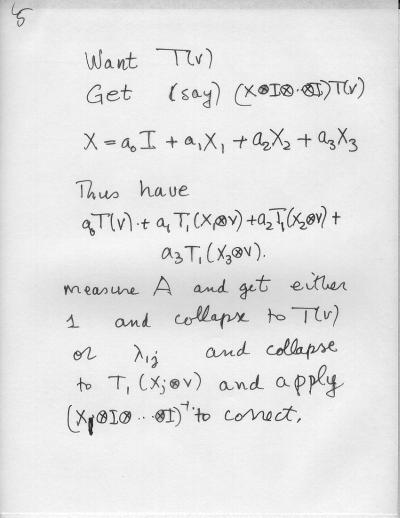 5
Want T(v)
Get (say) (X⊗I⊗··⊗I)T(v)
X = a₀I + a₁X₁ + a₂X₂ + a₃X₃
Thus have
a₀T(v) + a₁T₁(X₁⊗v) + a₂T₁(X₂⊗v) +
a₃T₁(X₃⊗v).
measure A and get either
1 and collapse to T(v)
or λ₁ⱼ and collapse
to T₁(Xⱼ⊗v) and apply
(Xⱼ⊗I⊗··⊗I)⁻¹ to correct.